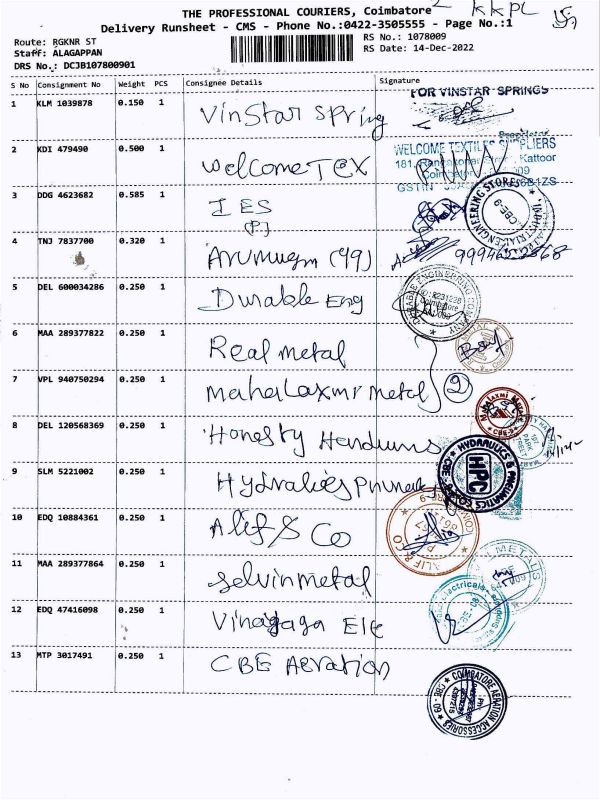 THE PROFESSIONAL COURIERS, Coimbatore
KKPL
Delivery Runsheet - CMS - Phone No.:0422-3505555 - Page No.:1
Route: RGKNR ST
Staff: ALAGAPPAN
DRS No.: DCJB107800901
RS No.: 1078009
RS Date: 14-Dec-2022
S No Consignment No Weight PCS Consignee Details Signature
1 KLM 1039878 0.150 1 Vinstar Spring
FOR VINSTAR SPRINGS
Proprietor
2 KDI 479490 0.500 1 Welcome TEX
WELCOME TEXTILES SUPPLIERS
Kattoor
GSTIN
3 DDG 4623682 0.585 1 IES
(P)
INDUSTRIAL ENGINEERING STORES
CBE-9
4 TNJ 7837700 0.320 1 Arumugm (49)
5 DEL 600034286 0.250 1 Durable Eng
DURABLE ENGINEERING COMPANY
Coimbatore
6 MAA 289377822 0.250 1 Real metal
7 VPL 940750294 0.250 1 mahalaxmi metal 2
Mahalaxmi
CBE-9
8 DEL 120568369 0.250 1 Honesty
9 SLM 5221002 0.250 1
HYDRAULICS & PNEUMATICS
HPC
CBE-9
10 EDQ 10884361 0.250 1 Alif & Co
ALIF & CO
11 MAA 289377864 0.250 1 selvinmetal
METALS
12 EDQ 47416098 0.250 1 Vinayaga Ele
Electricals
13 MTP 3017491 0.250 1 CBE Aeration
COIMBATORE AERATION ACCESSORIES
CBE-09